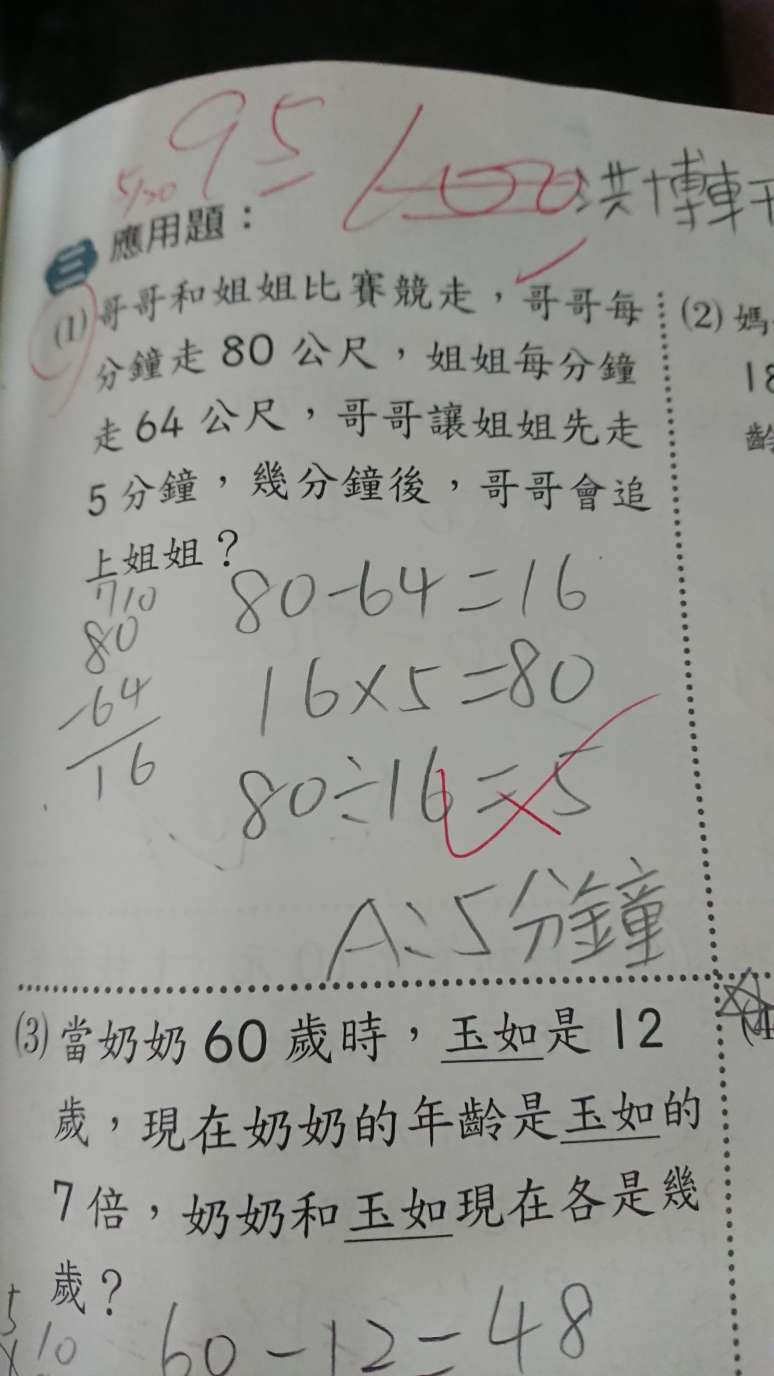 95
100
5/30
洪博軒
三 應用題：
(1) 哥哥和姐姐比賽競走，哥哥每
分鐘走 80 公尺，姐姐每分鐘
走 64 公尺，哥哥讓姐姐先走
5 分鐘，幾分鐘後，哥哥會追
上姐姐？
710
80
-64
16
80-64=16
16×5=80
80÷16=5
A:5分鐘
(2) 媽
18
齡
(3) 當奶奶 60 歲時，玉如是 12
歲，現在奶奶的年齡是玉如的
7 倍，奶奶和玉如現在各是幾
歲？
60-12=48